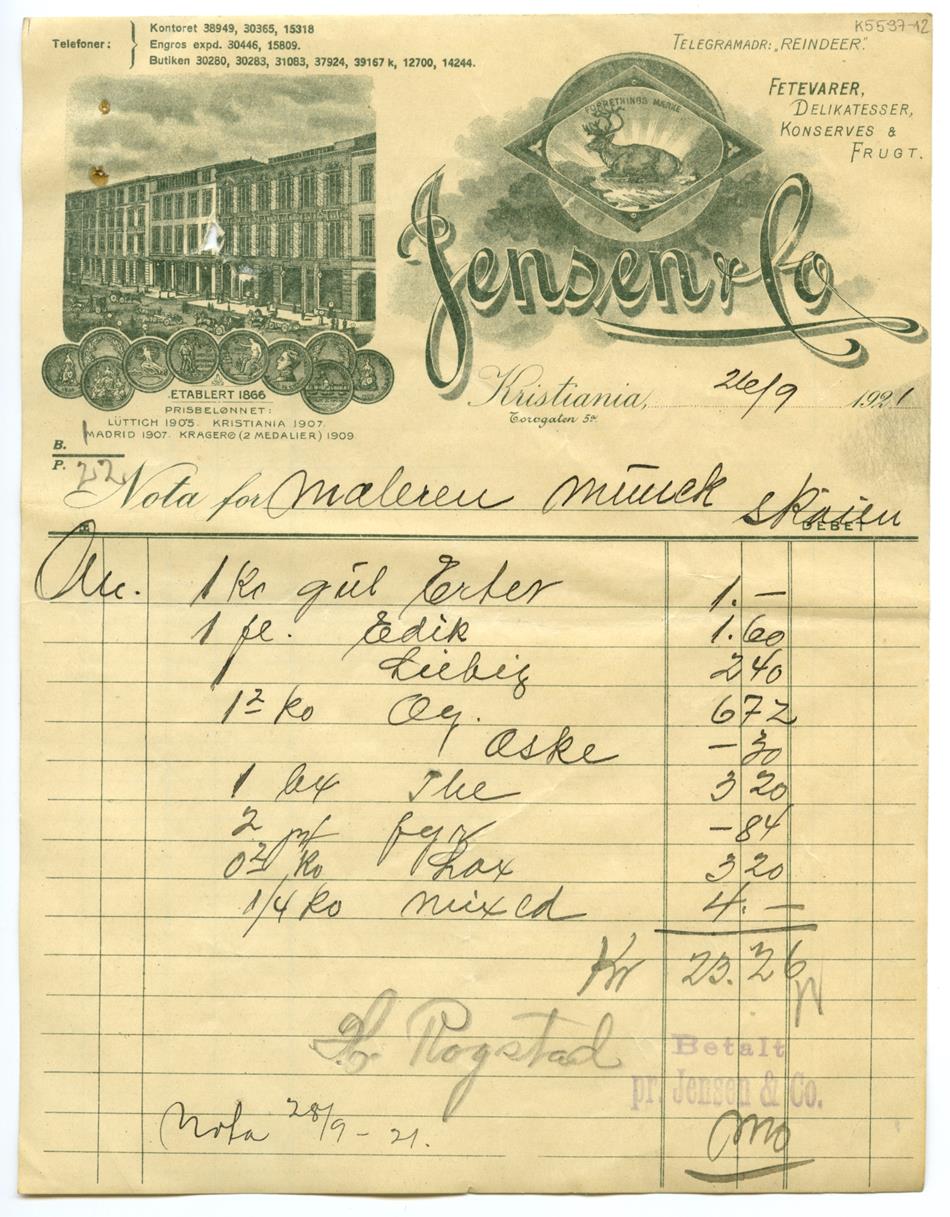 K5597-12
Telefoner:
Kontoret 38949, 30365, 15318
Engros expd. 30446, 15809.
Butiken 30280, 30283, 31083, 37924, 39167 k, 12700, 14244.
TELEGRAMADR: „REINDEER".
FETEVARER,
DELIKATESSER,
KONSERVES &
FRUGT.
FORRETNINGS MÆRKE
Jensen & Co
ETABLERT 1866
PRISBELØNNET:
LÜTTICH 1905. KRISTIANIA 1907.
MADRID 1907. KRAGERØ (2 MEDALIER) 1909
Kristiania, 26/9 1921
Torvgaten 5a
B. 1
P. 22
Nota for Maleren Münck Skøien
DEBET
1 Ko gül Erter 1.—
1 fl. Edik 1.60
1 Liebig 2 40
1 2 Ko Og. 6 72
Æske — 30
1 bx The 3 20
2 fyr — 84
0 2 Ko Lax 3 20
1/4 Ko mixed 4.—
Kr 23.26
Rogstad
Betalt
pr. Jensen & Co.
Nota 28/9 - 21.